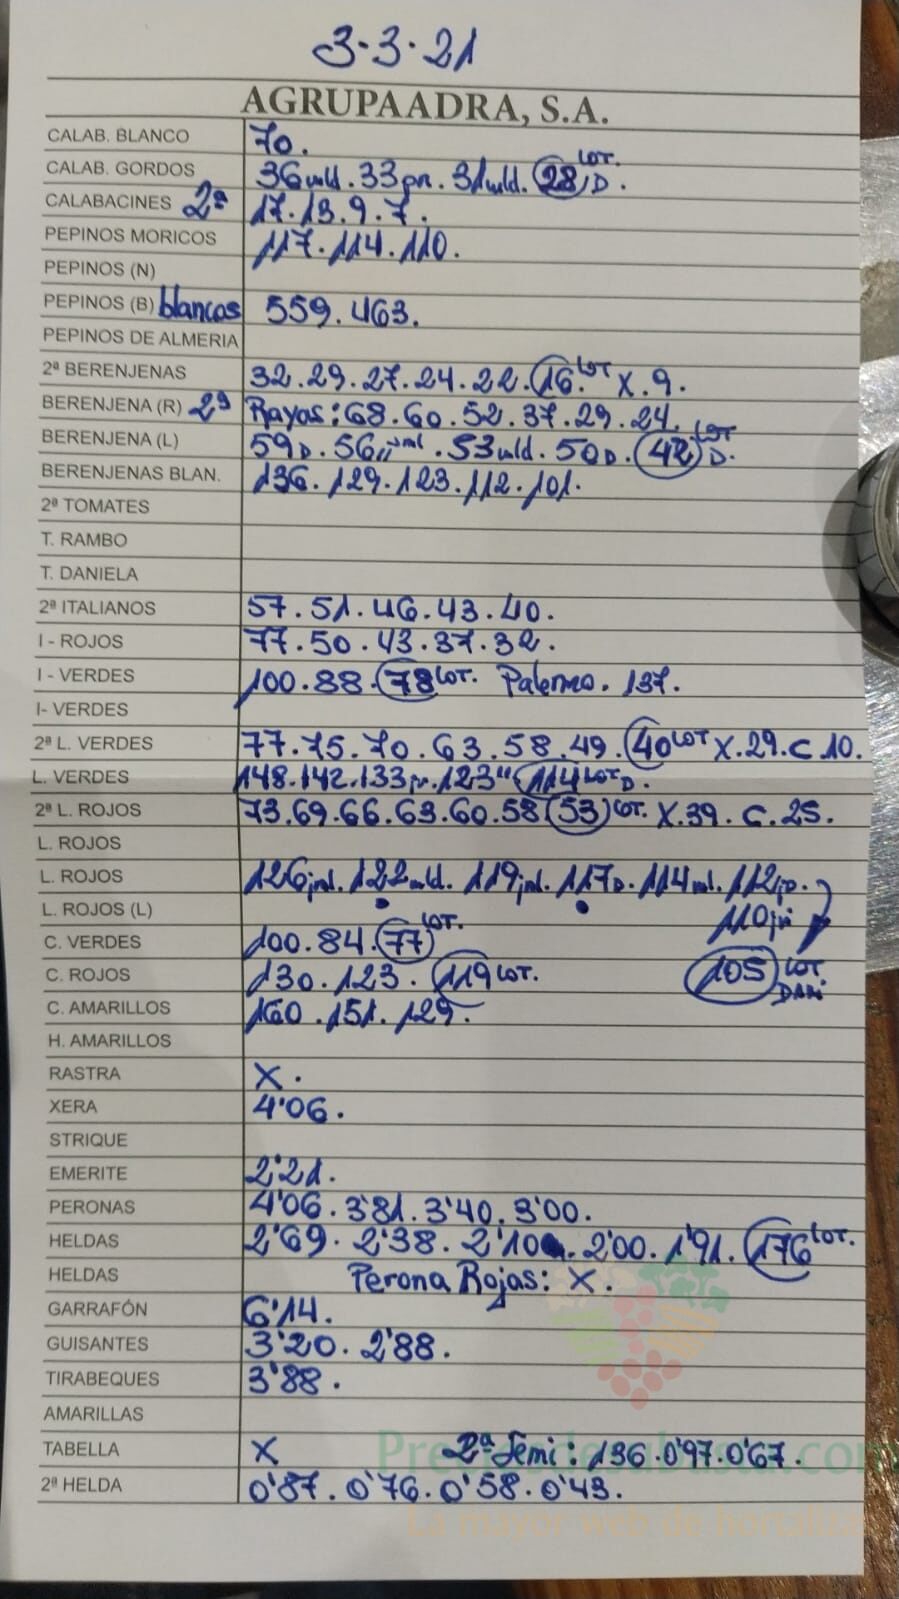 3-3-21
AGRUPAADRA, S.A.
CALAB. BLANCO 70.
CALAB. GORDOS 36 mld. 33 pn. 31 mld. 28 LOT. D.
CALABACINES 2ª 17. 13. 9. 7.
PEPINOS MORICOS 117. 114. 110.
PEPINOS (N)
PEPINOS (B) blancos 559. 463.
PEPINOS DE ALMERIA
2ª BERENJENAS 32. 29. 27. 24. 22. 16. LOT X. 9.
BERENJENA (R) 2ª Rayas: 68. 60. 52. 37. 29. 24.
BERENJENA (L) 59 D. 56 . 53 mld. 50 D. 42 LOT D.
BERENJENAS BLAN. 136. 129. 123. 112. 101.
2ª TOMATES
T. RAMBO
T. DANIELA
2ª ITALIANOS 57. 51. 46. 43. 40.
I - ROJOS 77. 50. 43. 37. 32.
I - VERDES 100. 88. 78 LOT. Palermo. 137.
I- VERDES
2ª L. VERDES 77. 75. 70. 63. 58. 49. 40 LOT X. 29. C 10.
L. VERDES 148. 142. 133 jr. 123 " 114 LOT D.
2ª L. ROJOS 73. 69. 66. 63. 60. 58 53 LOT. X. 39. C. 25.
L. ROJOS
L. ROJOS 126 jml. 122 mld. 119 jml. 117 D. 114 ml. 112 jD.
L. ROJOS (L) 110 jni
C. VERDES 100. 84. 77 LOT.
C. ROJOS 130. 123. 119 LOT. 105 LOT DANI
C. AMARILLOS 160. 151. 129.
H. AMARILLOS
RASTRA X.
XERA 4'06.
STRIQUE
EMERITE 2'21.
PERONAS 4'06. 3'81. 3'40. 3'00.
HELDAS 2'69. 2'38. 2'10. 2'00. 1'91. 176 LOT.
HELDAS Perona Rojas: X.
GARRAFÓN 6'14.
GUISANTES 3'20. 2'88.
TIRABEQUES 3'88.
AMARILLAS
TABELLA X 2ª Semi: 136. 0'97. 0'67.
Preciosdesubasta.com
2ª HELDA 0'87. 0'76. 0'58. 0'43.
La mayor web de hortalizas